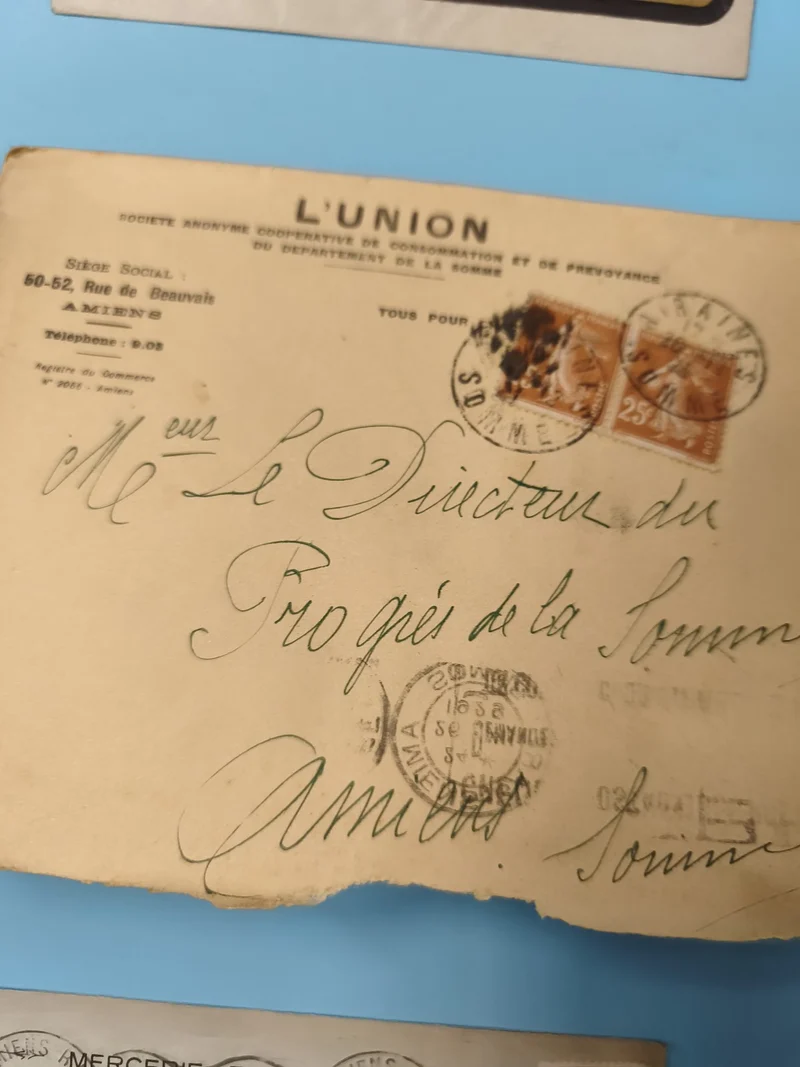 L'UNION
SOCIETE ANONYME COOPERATIVE DE CONSOMMATION ET DE PREVOYANCE
DU DEPARTEMENT DE LA SOMME
SIÈGE SOCIAL :
50-52, Rue de Beauvais
AMIENS
Téléphone : 9.03
Registre du Commerce
Amiens
TOUS POUR
SOMME
AIRAINES
SOMME
25
Meur Le Directeur du
Progrés de la Somm
AMIE
Amiens
Somme
MERCERIE